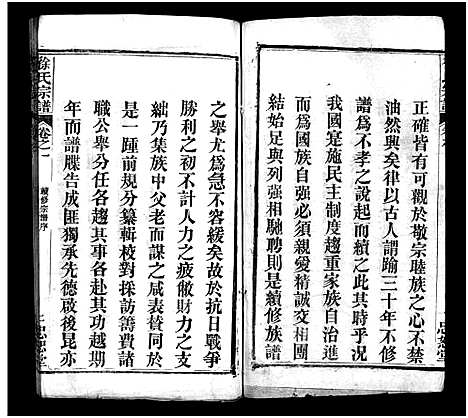 正確皆有可觀於敬宗睦族之心不禁
油然興矣律以古人謂踰三十年不修
譜爲不孝之說起而續之此其時乎况
我國是施民主制度趨重家族自治進
而爲國族自強必須親愛精誠交相團
結始足與列強相騁則是續修族譜
之舉尤爲急不容緩矣故於抗日戰爭
勝利之力不計人力之疲徹財力之支
絀乃集族中父老而謀之咸表贊同於
是一踵前規分纂輯校對採訪籌費諸
職公舉分任各趨其事各赴其功越期
年而譜牒告成匪獨承先德啟後昆亦
徐氏宗譜
卷之一
續修宗譜序
忠恕堂